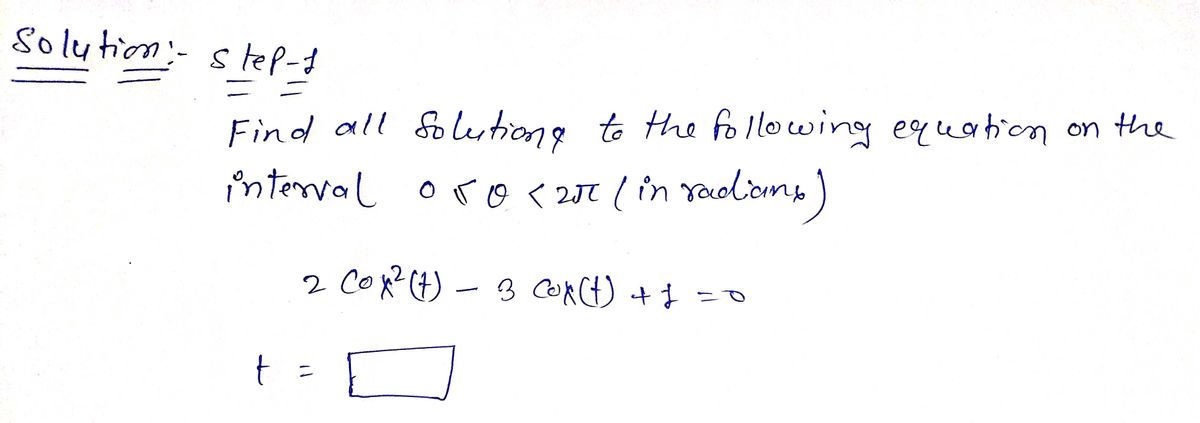 Solution:- Step-1
Find all Solutions to the following equation on the
interval 0 ≤ θ < 2π (in radians)
2 Cos²(t) - 3 Cos(t) + 1 = 0
t =